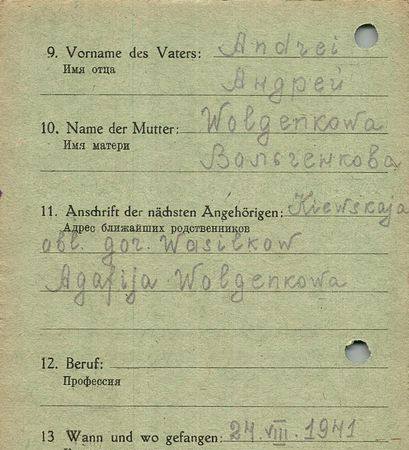 9. Vorname des Vaters: Andrei
Имя отца
Андрей
10. Name der Mutter: Wolgenkowa
Имя матери
Вольченкова
11. Anschrift der nächsten Angehörigen: Kiewskaja
Адрес ближайших родственников
obl. gor. Wasilkow
Agafija Wolgenkowa
12. Beruf:
Профессия
13 Wann und wo gefangen: 24. VIII. 1941